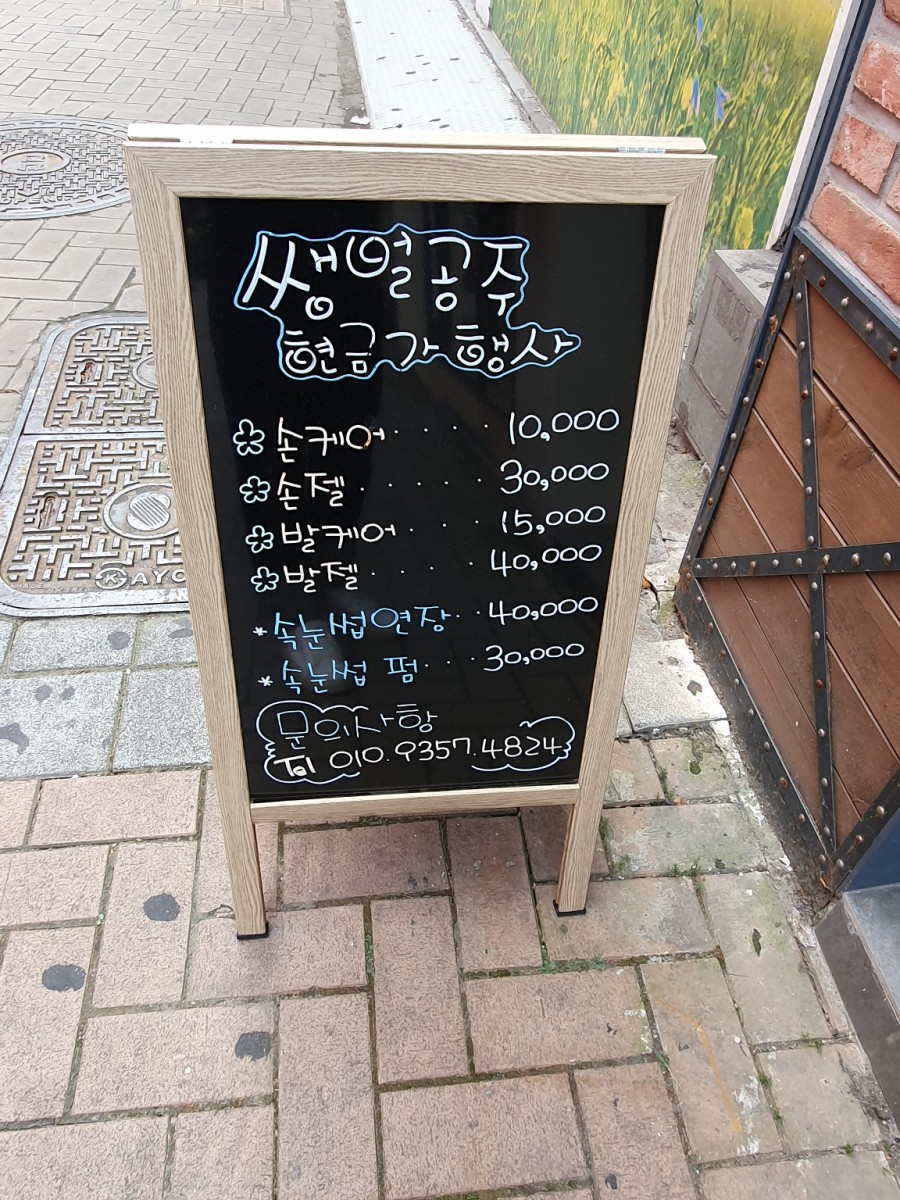 쌩얼공주
현금가 행사
손케어 · · · · 10,000
손젤 · · · · · 30,000
발케어 · · · 15,000
발젤 · · · · 40,000
* 속눈썹연장 · · 40,000
* 속눈썹 펌 · · · 30,000
문의사항
Tel 010.9357.4824
KAYO